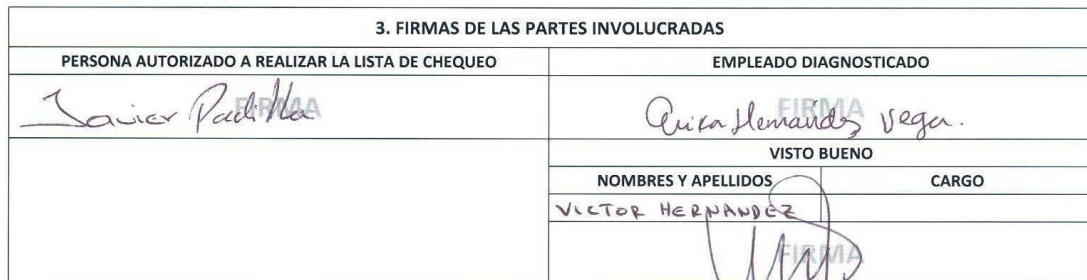 3. FIRMAS DE LAS PARTES INVOLUCRADAS
PERSONA AUTORIZADO A REALIZAR LA LISTA DE CHEQUEO
EMPLEADO DIAGNOSTICADO
Javier Padilla
FIRMA
Hernández Vega.
FIRMA
VISTO BUENO
NOMBRES Y APELLIDOS
CARGO
VICTOR HERNANDEZ
FIRMA